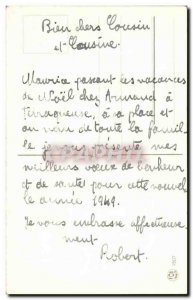 Bien chers Cousin
et Cousine
Maurice passant les vacances
de Noël chez Armand à
à sa place et
au nom de toute la famil
le je vous présente mes
meilleurs vœux de bonheur
et de santé pour cette nouvel
le année 1949.
Je vous embrasse affectueuse
ment
Robert.